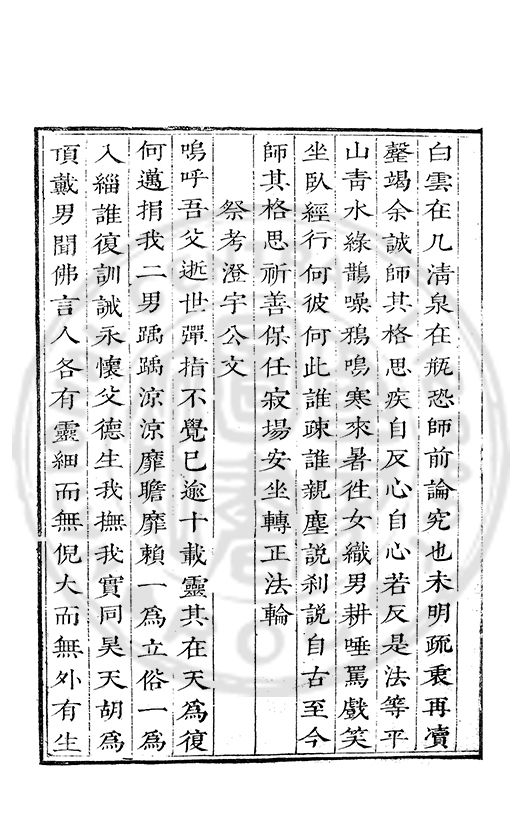 白雲在几清泉在瓶恐師前論究也未明疏裹再瀆
罄竭余誠師其格思疾自反心自心若反是法等平
山靑水綠鵲噪鴉鳴寒來暑徃女織男耕唾罵戲笑
坐臥經行何彼何此誰疎誰親塵說刹說自古至今
師其格思祈善保任寂場安坐轉正法輪
祭考澄宇公文
嗚呼吾父逝世彈指不覺已逾十載靈其在天爲復
何邁捐我二男踽踽涼涼靡瞻靡賴一爲立俗一爲
入緇誰復訓誡永懷父德生我撫我實同昊天胡爲
頂戴男聞佛言人各有靈細而無倪大而無外有生